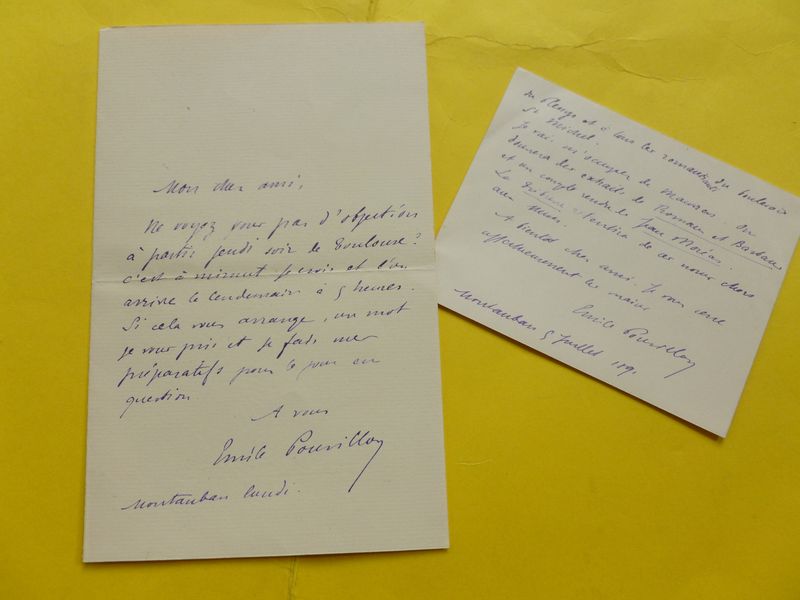 Mon cher ami,
Ne voyez vous pas d'objection
à partir jeudi soir de Toulouse ?
c'est à minuit je crois et l'on
arrive le lendemain à 9 heures.
Si cela vous arrange, un mot
je vous prie et je fais mes
préparatifs pour le jour en
question
A vous
Emile Pouvillon
Montauban lundi.
et à tous les du boulevard
St Michel.
Je vais m'occuper de
donnera des extraits de Romain et
et un compte rendu de Jean Moréas.
La de ces noms chers
aux
A bientôt cher ami. Je vous serre
affectueusement les mains
Emile Pouvillon
Montauban 5 Juillet 189